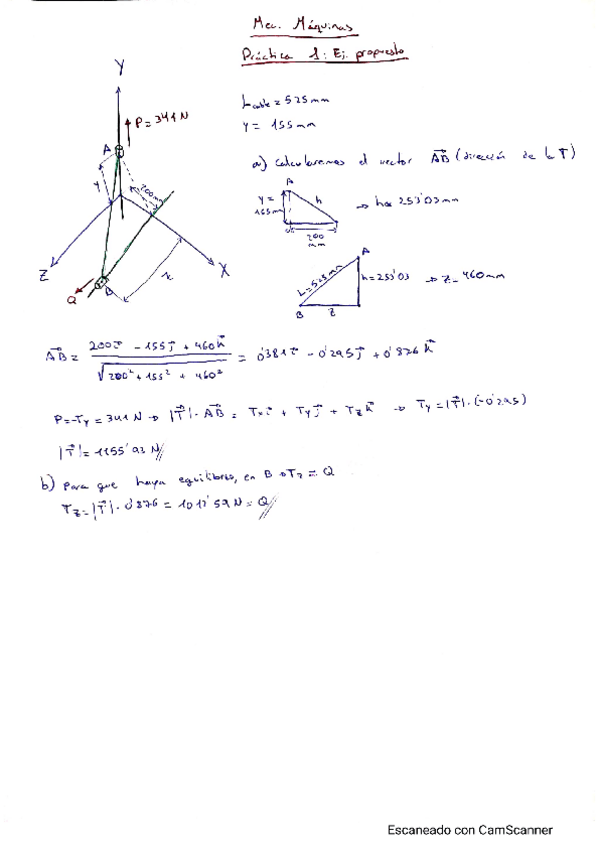 Mec. Máquinas
Práctica 1: Ej. propuesto
Y
P = 341 N
A
Y
200mm
Z
X
Z
Q
B
Lcable = 525 mm
Y = 155 mm
a) Calcularemos el vector AB (dirección de la T)
A
Y = 155 mm
h
200 mm
→ h = 253'03 mm
A
L = 525 mm
h = 253'03
B
Z
→ Z = 460 mm
AB = 200 i - 155 j + 460 k / √200² + 155² + 460² = 0'381 i - 0'295 j + 0'876 k
P = -Ty = 341 N → |T| · AB = Tx i + Ty j + Tz k → Ty = |T| · (-0'295)
|T| = 1155'93 N
b) Para que haya equilibrio, en B → Tz = Q
Tz = |T| · 0'876 = 1012'59 N = Q
Escaneado con CamScanner